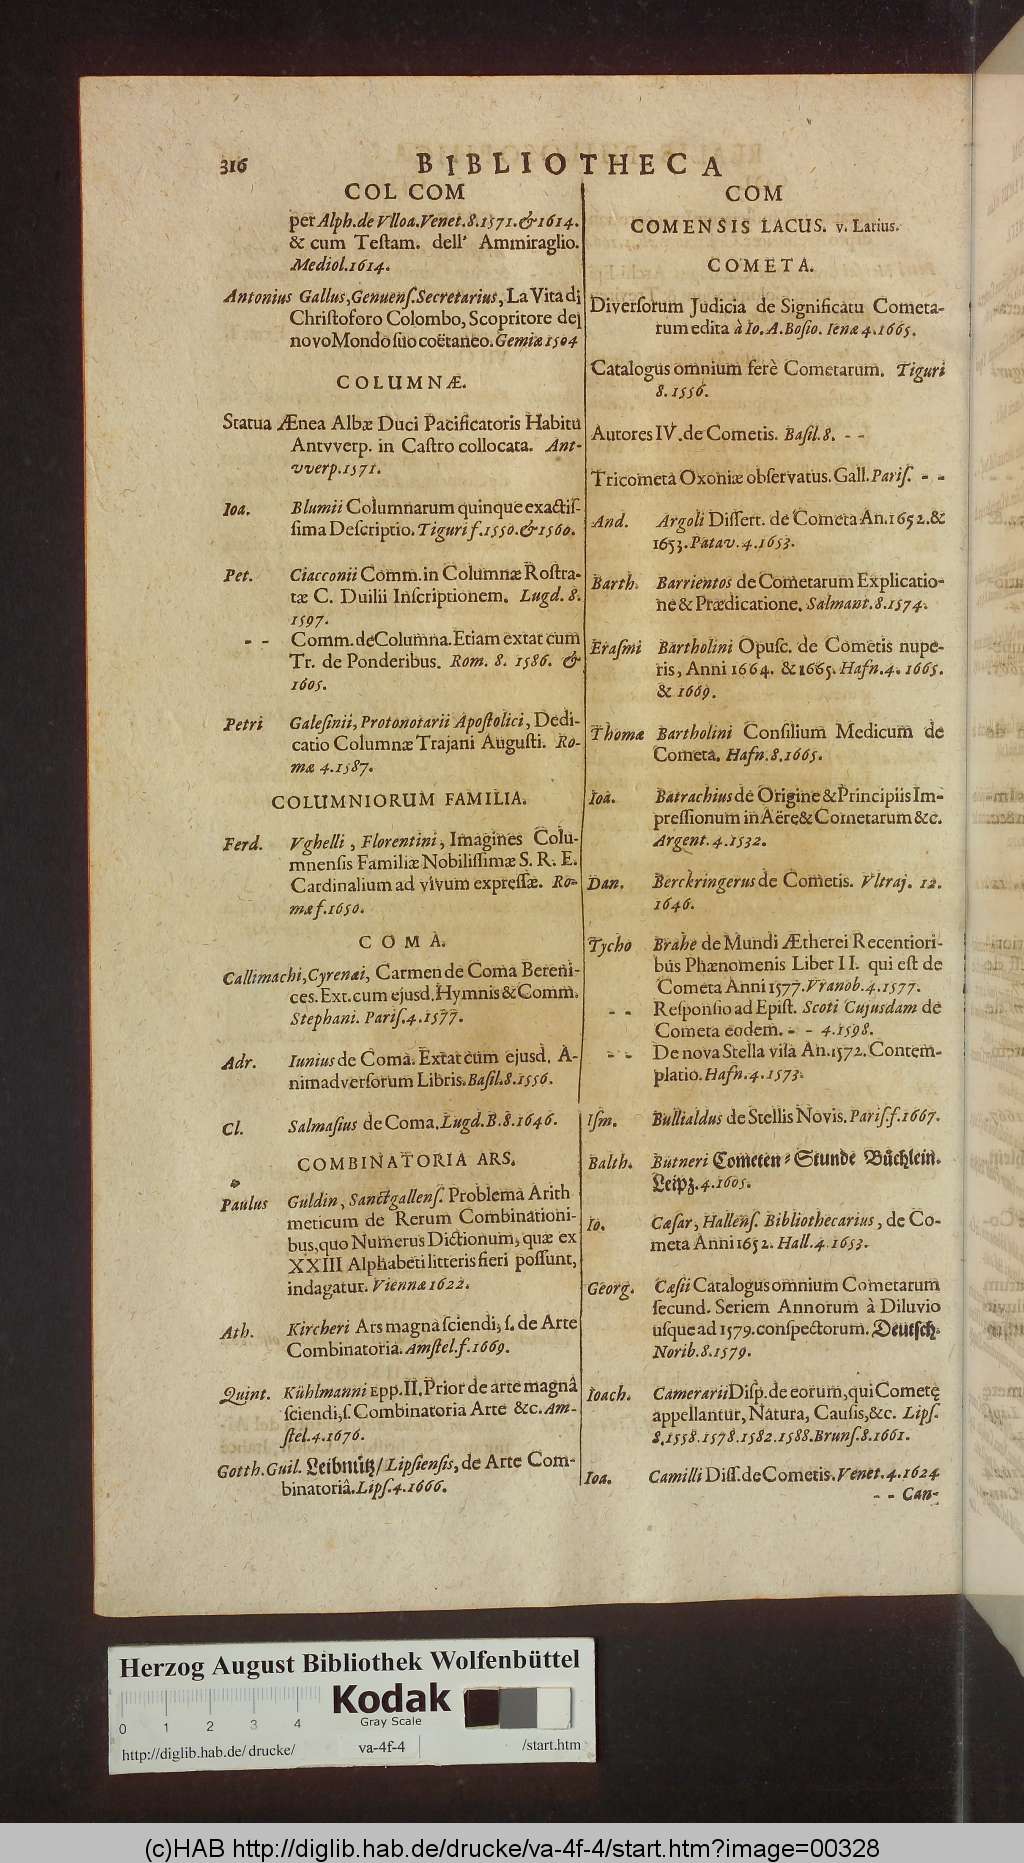 316
BIBLIOTHECA
COL COM
per Alph. de Vlloa. Venet. 8. 1571. & 1614.
& cum Teſtam. dell' Ammiraglio.
Mediol. 1614.
Antonius Gallus, Genuenſ. Secretarius, La Vita di
Chriſtoforo Colombo, Scopritore del
novo Mondo ſuo coëtaneo. Gemiæ 1504
COLUMNÆ.
Statua Ænea Albæ Duci Pacificatoris Habitu
Antvverp. in Caſtro collocata. Ant-
vverp. 1571.
Ioa. Blumii Columnarum quinque exactiſ-
ſima Deſcriptio. Tiguri f. 1550. & 1560.
Pet. Ciacconii Comm. in Columnæ Roſtra-
tæ C. Duilii Inſcriptionem. Lugd. 8.
1597.
- - Comm. de Columna. Etiam extat cum
Tr. de Ponderibus. Rom. 8. 1586. &
1605.
Petri Galeſinii, Protonotarii Apoſtolici, Dedi-
catio Columnæ Trajani Auguſti. Ro-
mæ 4. 1587.
COLUMNIORUM FAMILIA.
Ferd. Vghelli, Florentini, Imagines Colu-
mnenſis Familiæ Nobiliſſimæ S. R. E.
Cardinalium ad vivum expreſſæ. Ro-
mæ f. 1650.
COMA.
Callimachi, Cyrenæi, Carmen de Coma Bereni-
ces. Ext. cum ejusd. Hymnis & Comm.
Stephani. Pariſ. 4. 1577.
Adr. Iunius de Coma. Extat cum ejusd. A-
nimadverſorum Libris. Baſil. 8. 1556.
Cl. Salmaſius de Coma. Lugd. B. 8. 1646.
COMBINATORIA ARS.
Paulus Guldin, Sanctgallenſ. Problema Arith
meticum de Rerum Combinationi-
bus, quo Numerus Dictionum, quæ ex
XXIII Alphabeti litteris fieri poſſunt,
indagatur. Viennæ 1622.
Ath. Kircheri Ars magna ſciendi, ſ. de Arte
Combinatoria. Amſtel. f. 1669.
Quint. Kühlmanni Epp. II, Prior de arte magnâ
ſciendi, ſ. Combinatoria Arte &c. Am-
ſtel. 4. 1676.
Gotth. Guil. Leibnütz/ Lipſienſis, de Arte Com-
binatoriâ. Lipſ. 4. 1666.
COM
COMENSIS LACUS. v. Larius.
COMETA.
Diverſorum Judicia de Significatu Cometa-
rum edita à Io. A. Boſio. Ienæ 4. 1665.
Catalogus omnium ferè Cometarum. Tiguri
8. 1556.
Autores IV. de Cometis. Baſil. 8. - -
Tricometa Oxoniæ obſervatus. Gall. Pariſ. - -
And. Argoli Diſſert. de Cometa An. 1652. &
1653. Patav. 4. 1653.
Barth. Barrientos de Cometarum Explicatio-
ne & Prædicatione. Salmant. 8. 1574.
Eraſmi Bartholini Opuſc. de Cometis nupe-
ris, Anni 1664. & 1665. Hafn. 4. 1665.
& 1669.
Thomæ Bartholini Conſilium Medicum de
Cometa. Hafn. 8. 1665.
Ioa. Batrachius de Origine & Principiis Im-
preſſionum in Aëre & Cometarum &c.
Argent. 4. 1532.
Dan. Berckringerus de Cometis. Vltraj. 12.
1646.
Tycho Brahe de Mundi Ætherei Recentiori-
bus Phænomenis Liber II. qui eſt de
Cometa Anni 1577. Vranob. 4. 1577.
- - Reſponſio ad Epiſt. Scoti Cujusdam de
Cometa eodem. - - 4. 1598.
- - De nova Stella viſa An. 1572. Contem-
platio. Hafn. 4. 1573.
Iſm. Bullialdus de Stellis Novis. Pariſ. f. 1667.
Balth. Bütneri Cometen-Stunde Büchlein.
Leipz. 4. 1605.
Io. Cæſar, Hallenſ. Bibliothecarius, de Co-
meta Anni 1652. Hall. 4. 1653.
Georg. Cæſii Catalogus omnium Cometarum
ſecund. Seriem Annorum à Diluvio
usque ad 1579. conſpectorum. Deutſch.
Norib. 8. 1579.
Ioach. Camerarii Diſp. de eorum, qui Cometę
appellantur, Natura, Cauſis, &c. Lipſ.
8. 1558. 1578. 1582. 1588. Brunſ. 8. 1661.
Ioa. Camilli Diſſ. de Cometis. Venet. 4. 1624
- - Can-
Herzog August Bibliothek Wolfenbüttel
Kodak
Gray Scale
0 1 2 3 4
http://diglib.hab.de/drucke/ va-4f-4 /start.htm
(c)HAB http://diglib.hab.de/drucke/va-4f-4/start.htm?image=00328